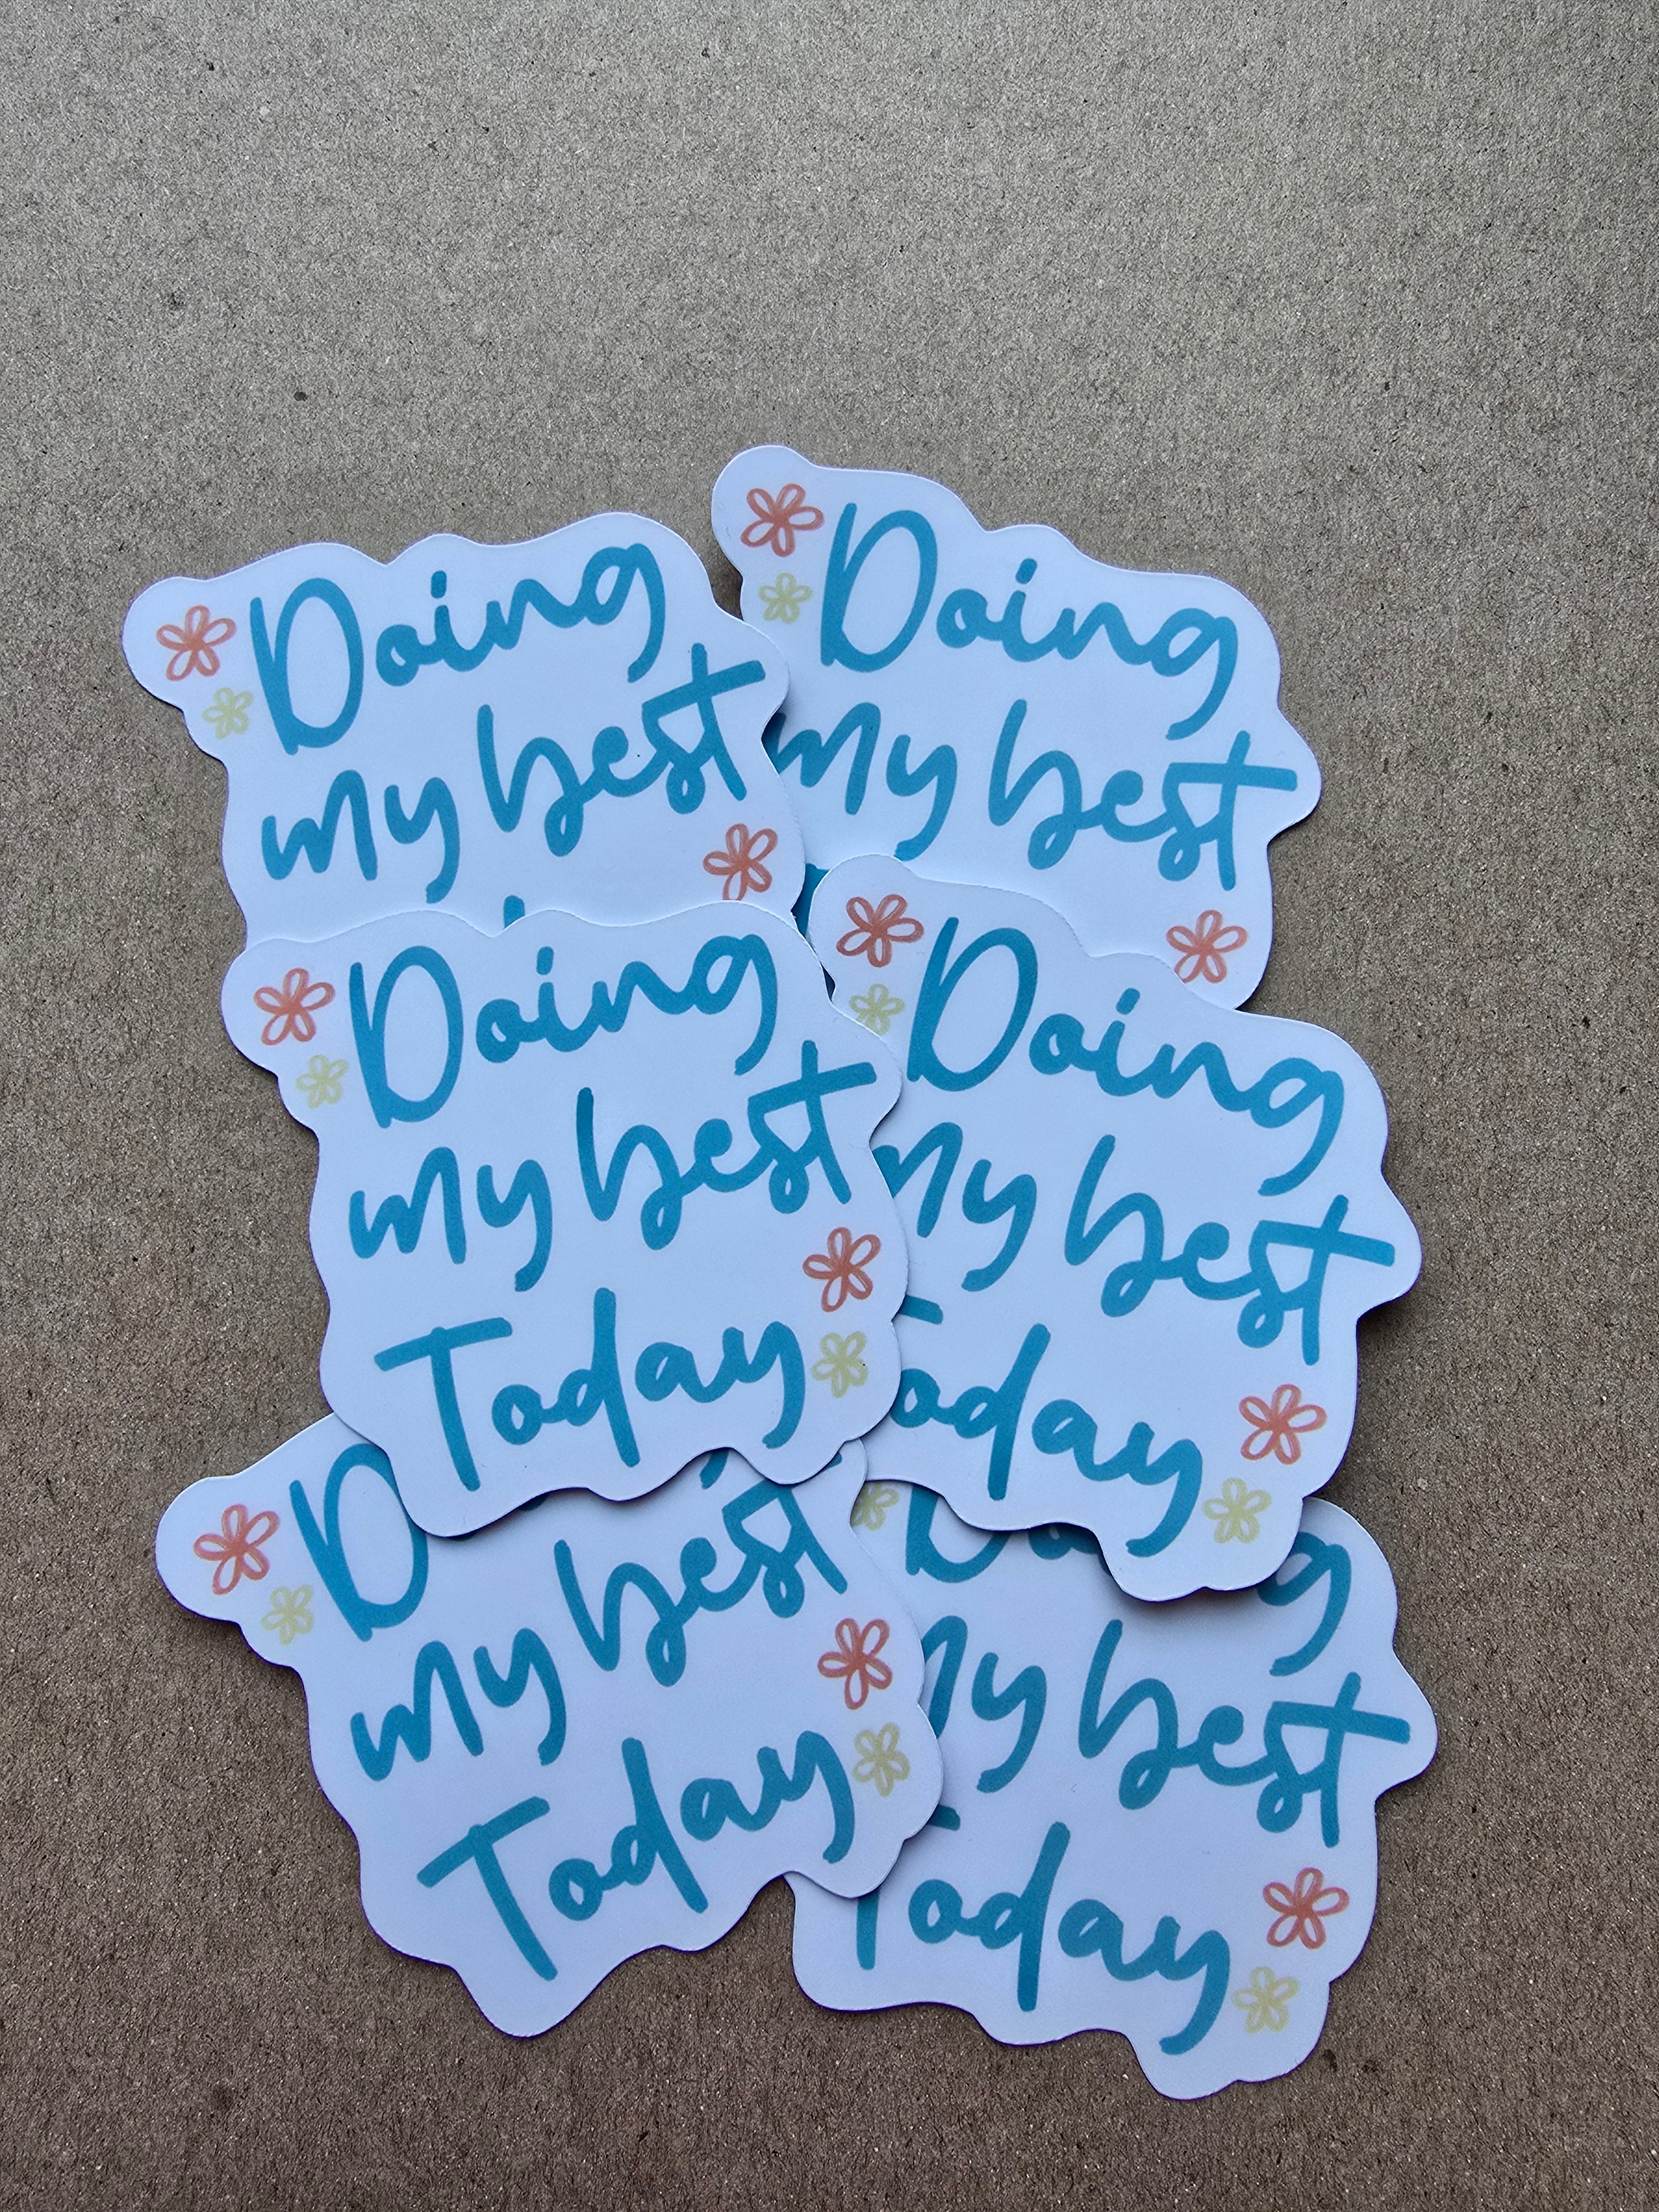 Doing
my best
Doing
my best
Doing
my best
Today
Doing
my best
Today
my best
Today
my best
Today